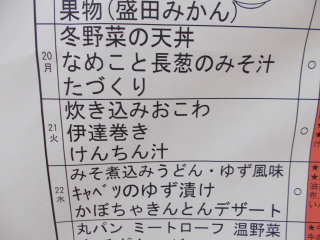 果物(盛田みかん)
冬野菜の天丼
20
月
なめこと長葱のみそ汁
たづくり
炊き込みおこわ
21
火
伊達巻き
けんちん汁
みそ煮込みうどん・ゆず風味
22
水
ｷｬﾍﾞﾂのゆず漬け
かぼちゃきんとんデザート
丸パン ミートローフ 温野菜